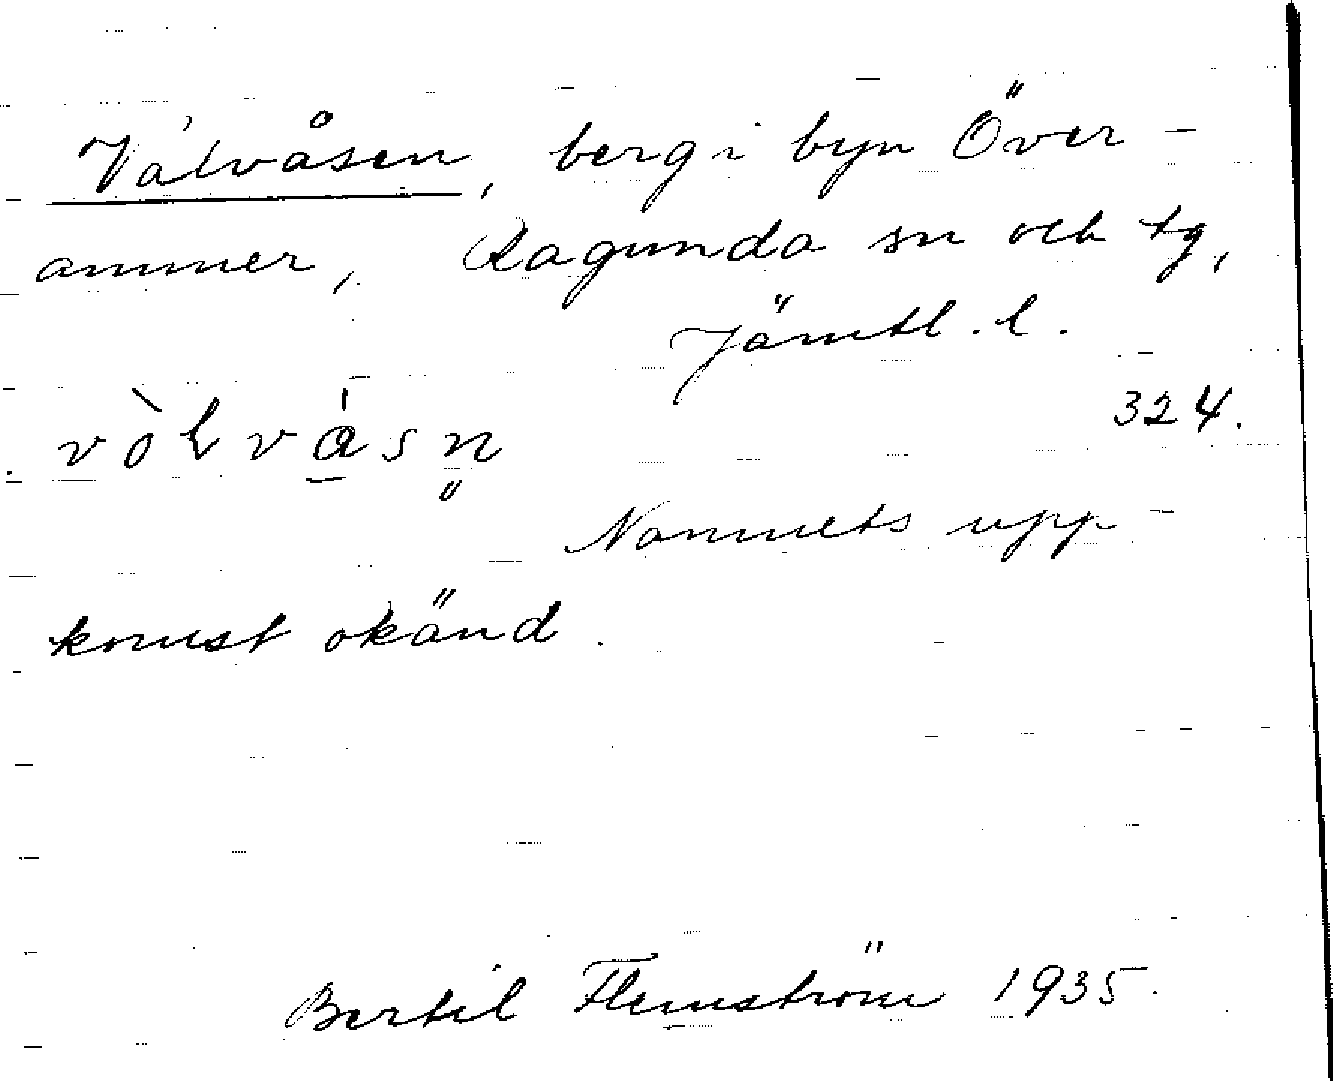 Válvåsen, berg i byn Över-
ammer, Ragunda sn och tg,
Jämtl. l.
324.
vòlvá̱sn̤
Namnets upp-
komst okänd.
Bertil Flemström 1935.